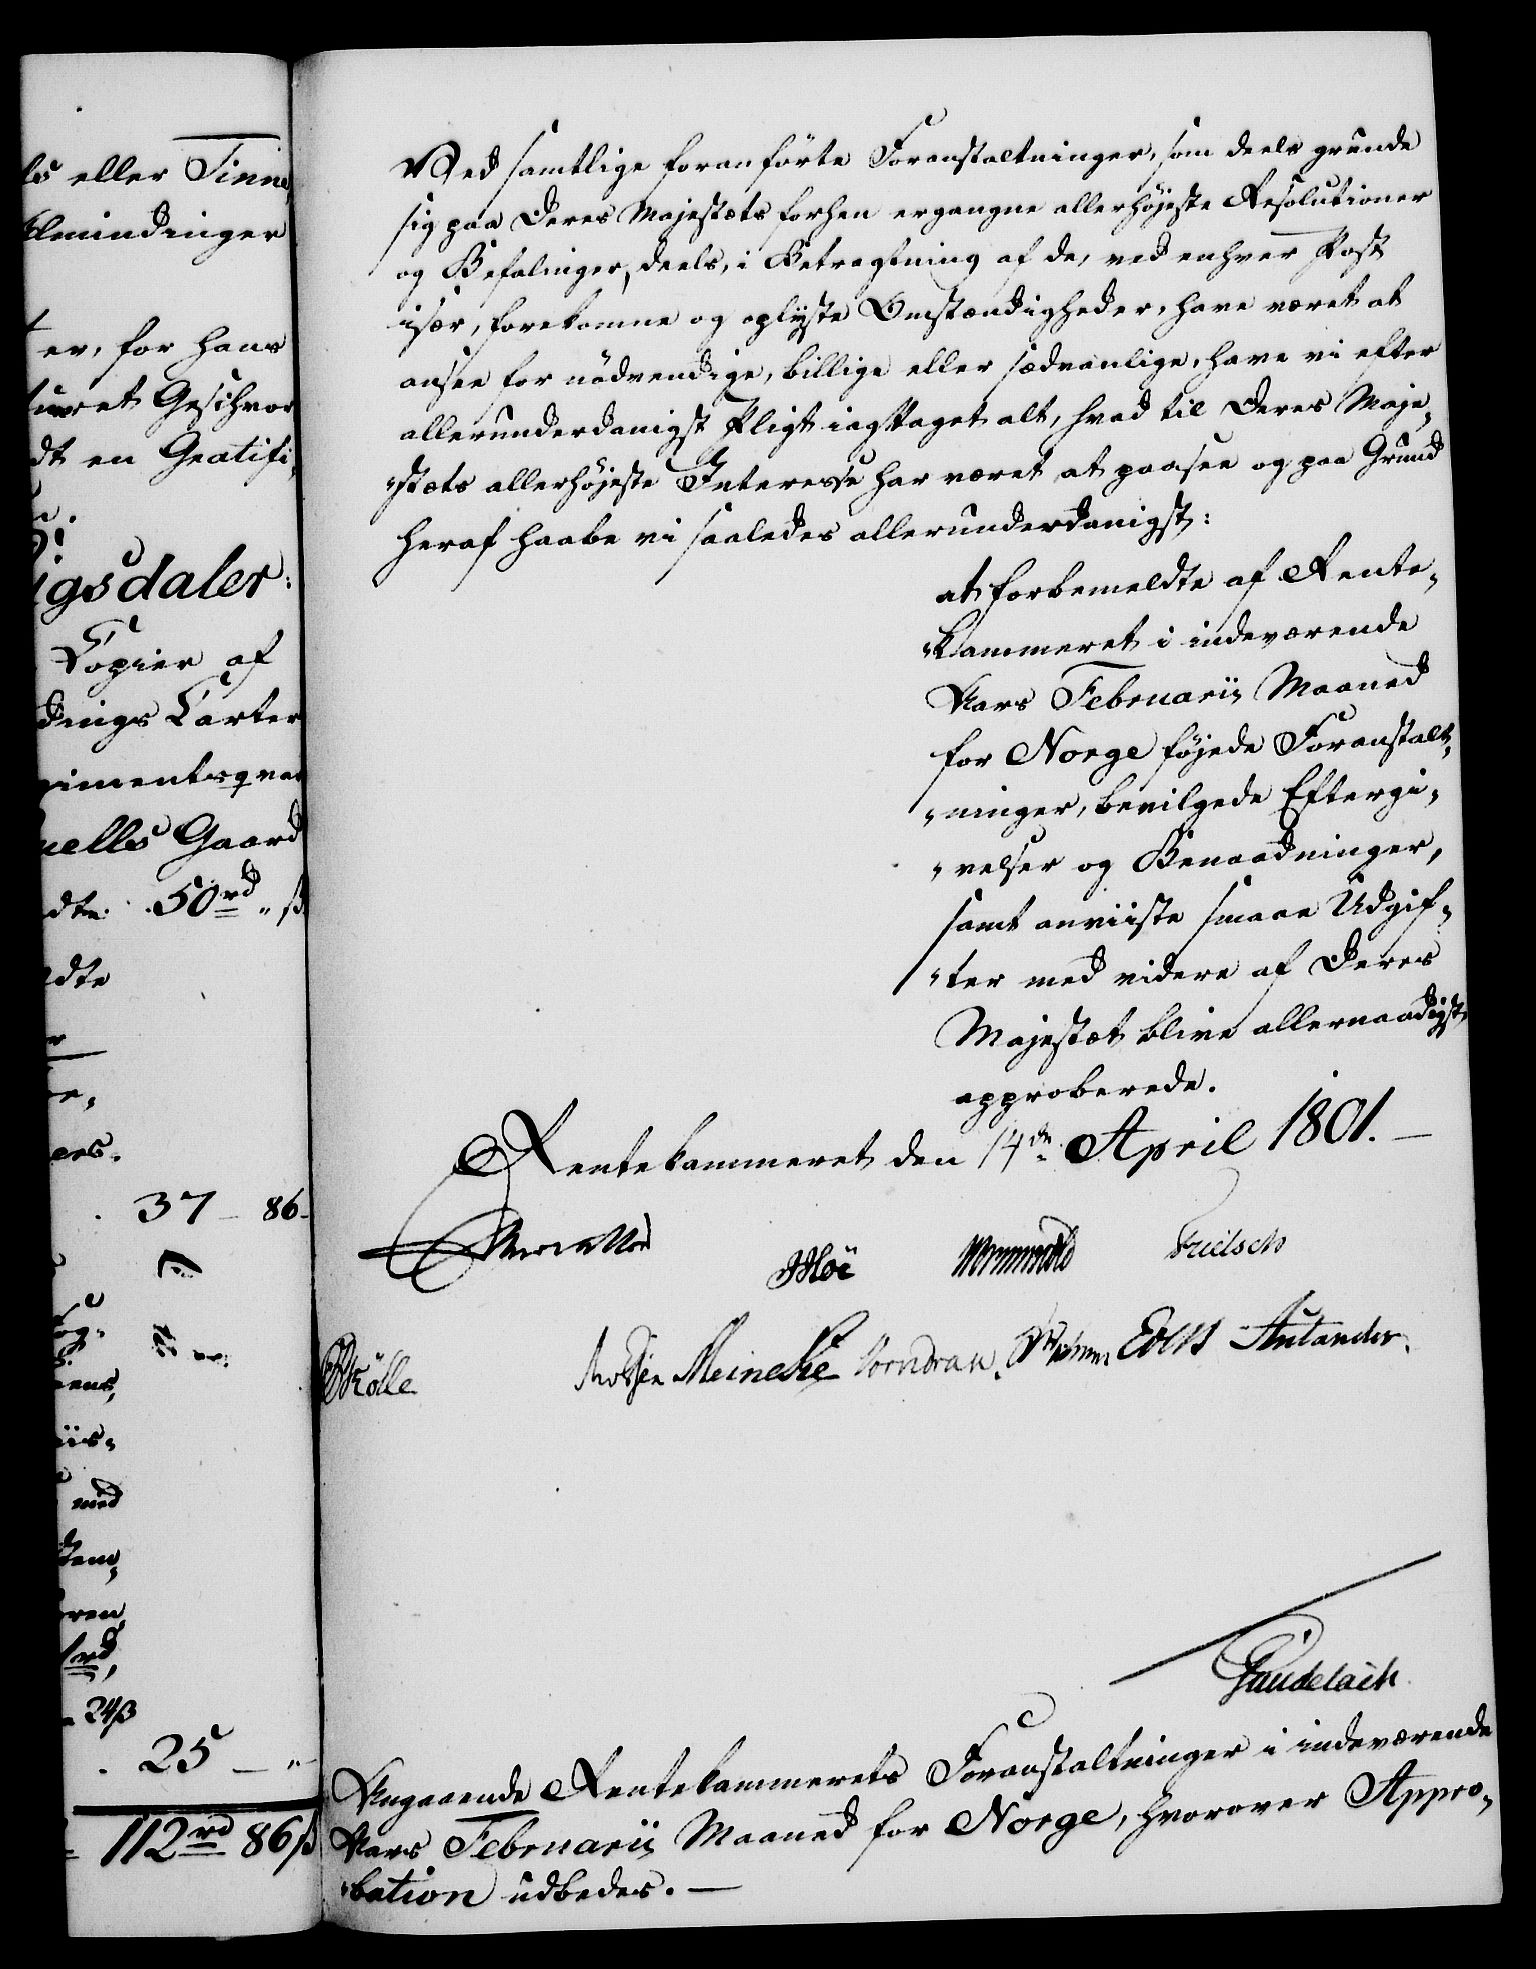 ls eller Tinne
Almindinger
er, for hans
uret Geschwor
dt en Gratifi„
igsdaler:
Copier af
dings Carter
gimentsqvar
nells Gaard
dte . 50rd „ ß
dte
. 37 – 86
med
rd,
24ß
. 25 – „
112rd 86ß
Ved samtlige foranførte Foranstaltninger, som deels grunde
sig paa Deres Majestæts forhen ergangne allerhøjeste Resolutioner
og Befalinger, deels, i Betragtning af de, ved enhver Post
især, forekomne og oplyste Omstændigheder, have været at
ansee for nødvendige, billige eller sædvanlige, have vi efter
allerunderdanigst Pligt iagttaget alt, hvad til Deres Maje„
„stæts allerhøjeste Interesse har været at paasee og paa Grund
heraf haabe vi saaledes allerunderdanigst:
at forbemeldte af Rente„
„kammeret i indeværende
Aars Februarii Maaned
for Norge føjede Foranstalt„
„ninger, bevilgede Eftergi„
„velser og Benaadninger,
samt anviiste smaae Udgif„
„ter med videre af Deres
Majestæt blive allernaadigst
approberede.
Rentekammeret den 14de April 1801. –
Wormskiold Fritsch
Kølle
Meincke Vorndran. Evers Autander.
Gaudelach
Angaaende Rentekammerets Foranstaltninger i indeværende
Aars Februarii Maaned for Norge, hvorover Appro„
„bation udbedes. –